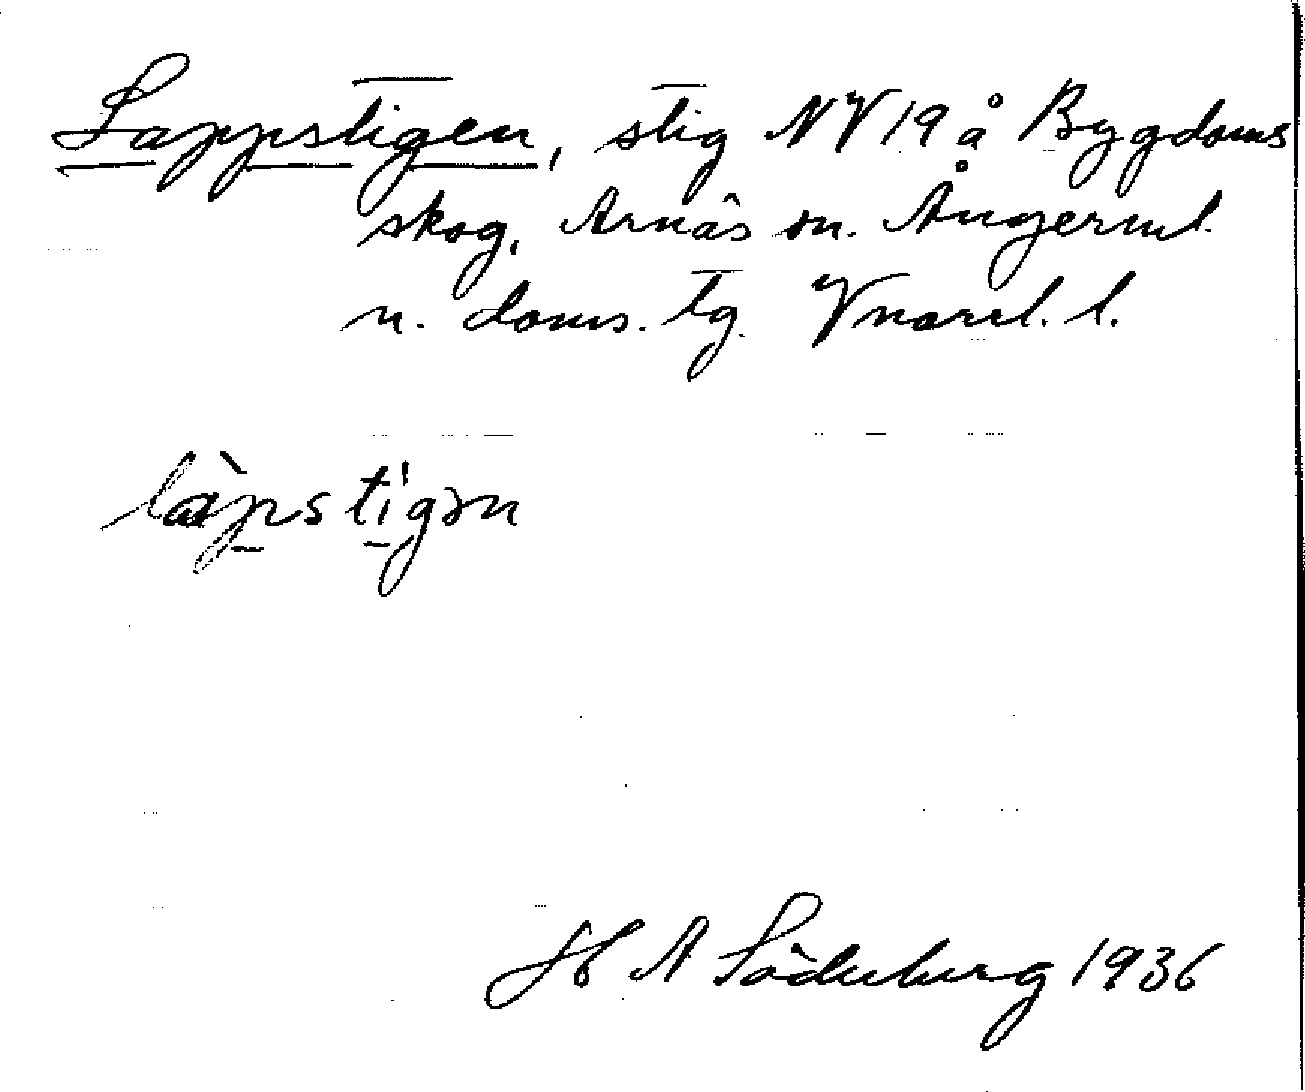 Lappstigen, stig NV 19 å Bygdoms
skog, Arnäs sn. Ångerml.
n. doms. tg. Vnorrl. l.
làpstigən
H A Söderberg 1936